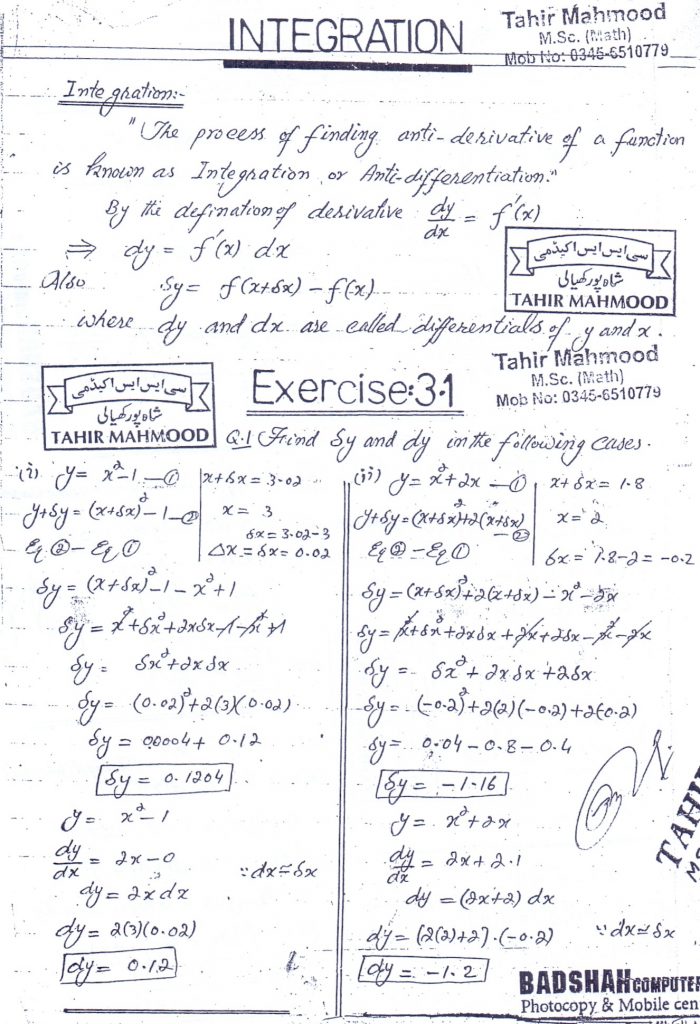 INTEGRATION
Tahir Mahmood
M.Sc. (Math)
Mob No: 0345-6510779
Integration:-
"The process of finding anti-derivative of a function
is known as Integration or Anti-differentiation."
By the defination of derivative dy/dx = f'(x)
⇒ dy = f'(x) dx
Also δy = f(x+δx) - f(x)
where dy and dx are called differentials of y and x.
سی ایس ایس اکیڈمی
شاہ پور کھیالی
TAHIR MAHMOOD
Tahir Mahmood
M.Sc. (Math)
Mob No: 0345-6510779
سی ایس ایس اکیڈمی
شاہ پور کھیالی
TAHIR MAHMOOD
Exercise:3.1
Q.1 Find δy and dy in the following cases.
(i) y = x²-1 —①
x+δx = 3.02
y+δy = (x+δx)²-1 —②
x = 3
δx = 3.02-3
Eq ② - Eq ①
Δx = δx = 0.02
δy = (x+δx)²-1-x²+1
δy = x²+δx²+2xδx-1-x²+1
δy = δx²+2xδx
δy = (0.02)²+2(3)(0.02)
δy = 0.0004+ 0.12
δy = 0.1204
y = x²-1
dy/dx = 2x-0
∵ dx≅δx
dy = 2x dx
dy = 2(3)(0.02)
dy = 0.12
(ii) y = x²+2x —①
x+δx = 1.8
y+δy = (x+δx)²+2(x+δx) —②
x = 2
Eq ② - Eq ①
δx = 1.8-2 = -0.2
δy = (x+δx)²+2(x+δx)-x²-2x
δy = x²+δx²+2xδx+2x+2δx-x²-2x
δy = δx²+2xδx+2δx
δy = (-0.2)²+2(2)(-0.2)+2(0.2)
δy = 0.04-0.8-0.4
δy = -1.16
y = x²+2x
dy/dx = 2x+2.1
dy = (2x+2) dx
dy = (2(2)+2).(-0.2)
∵ dx≅δx
dy = -1.2
BADSHAH COMPUTE
Photocopy & Mobile cen